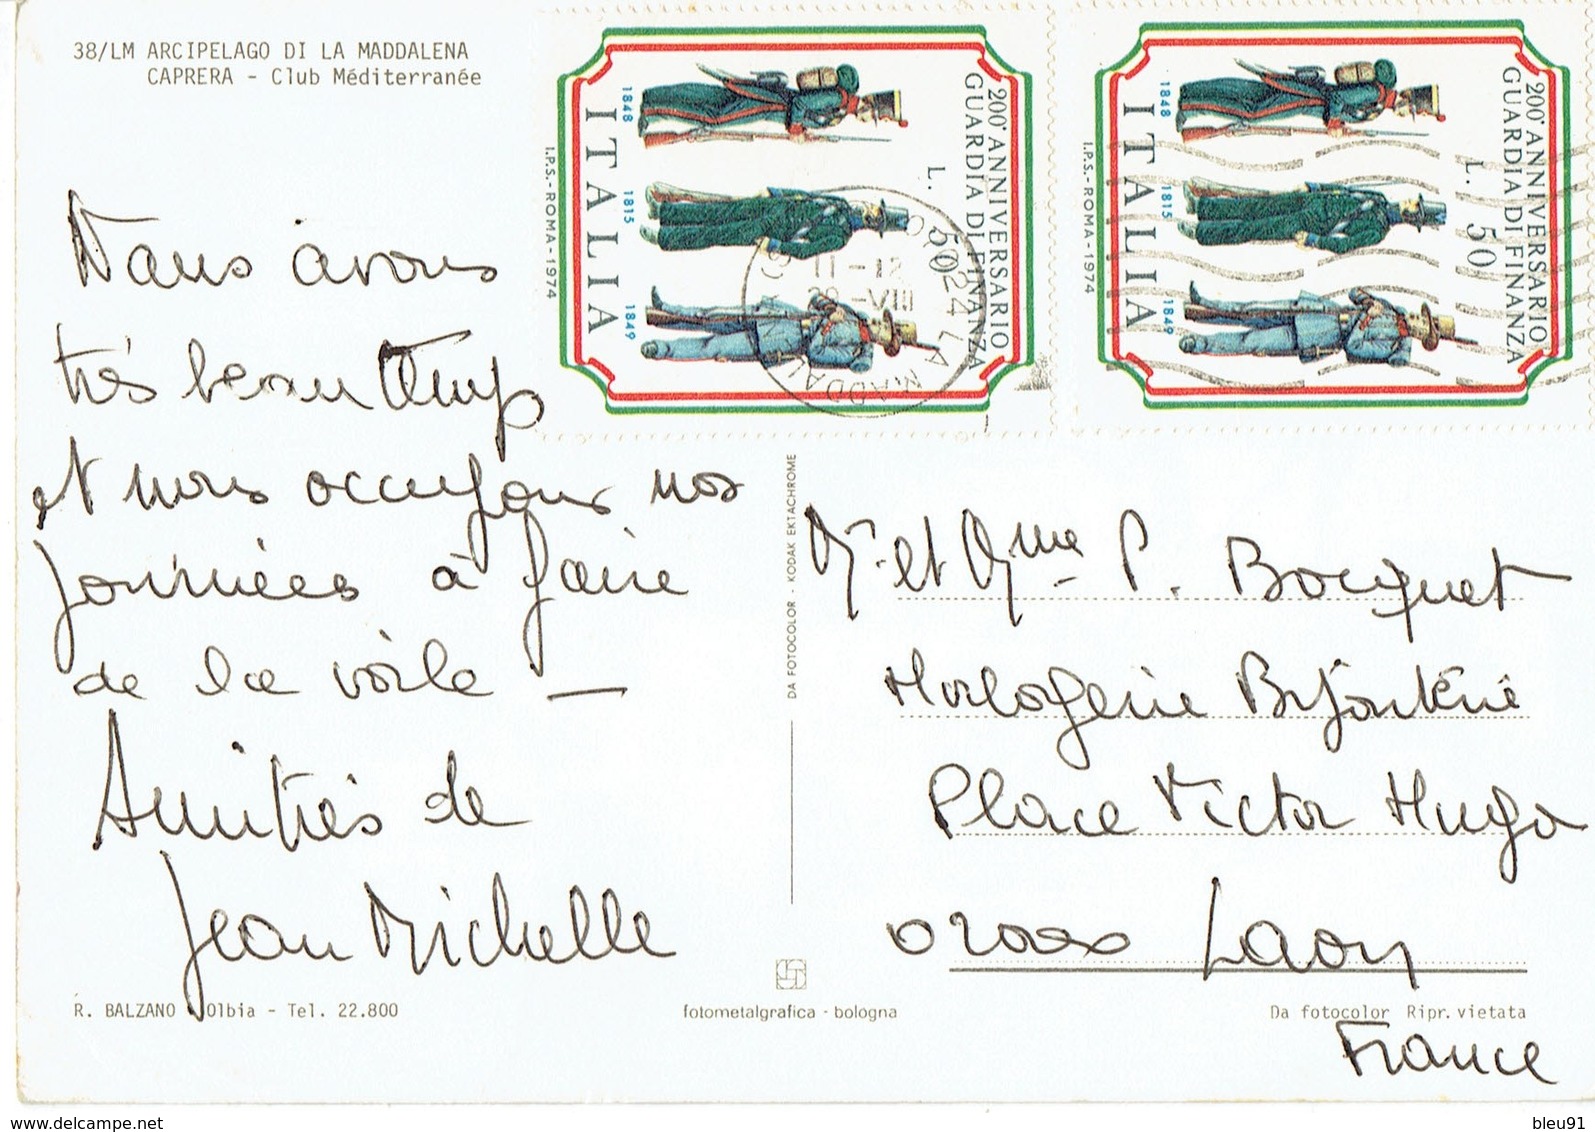 38/LM ARCIPELAGO DI LA MADDALENA
CAPRERA - Club Méditerranée
200° ANNIVERSARIO
GUARDIA DI FINANZA
L. 50
1848 1815 1849
ITALIA
I.P.S.-ROMA-1974
200° ANNIVERSARIO
GUARDIA DI FINANZA
L. 50
1848 1815 1849
ITALIA
I.P.S.-ROMA-1974
07024 LA MADDALENA
11-12
-VIII
Nous avons
très beau temps
et nous occupons nos
journées à faire
de la voile —
Amitiés de
Jean Michelle
DA FOTOCOLOR - KODAK EKTACHROME
Mr. et Mme P. Bocquet
Horlogerie Bijouterie
Place Victor Hugo
02000 Laon
France
R. BALZANO - Olbia - Tel. 22.800
fotometalgrafica - bologna
Da fotocolor Ripr. vietata
www.delcampe.net
bleu91